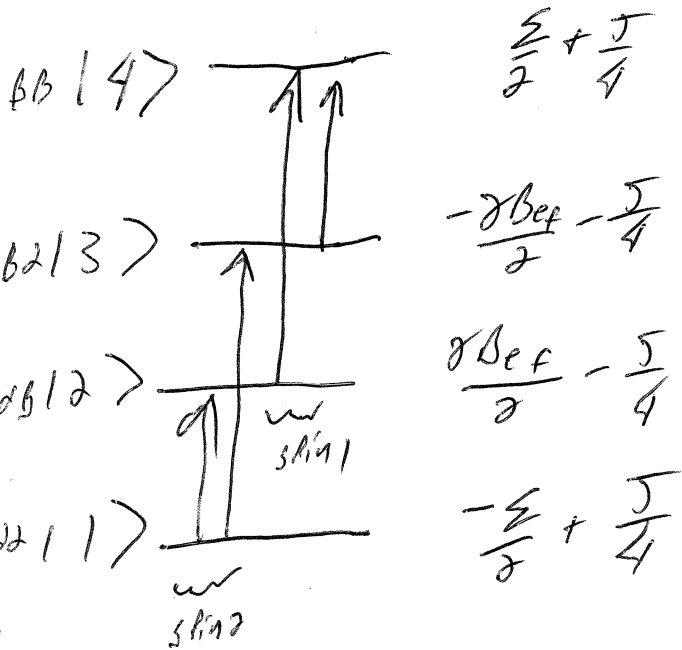 ββ|4> Σ/2 + J/4
βα|3> -γBef/2 - J/4
αβ|2> γBef/2 - J/4
spin 1
αα|1> -Σ/2 + J/4
spin 2